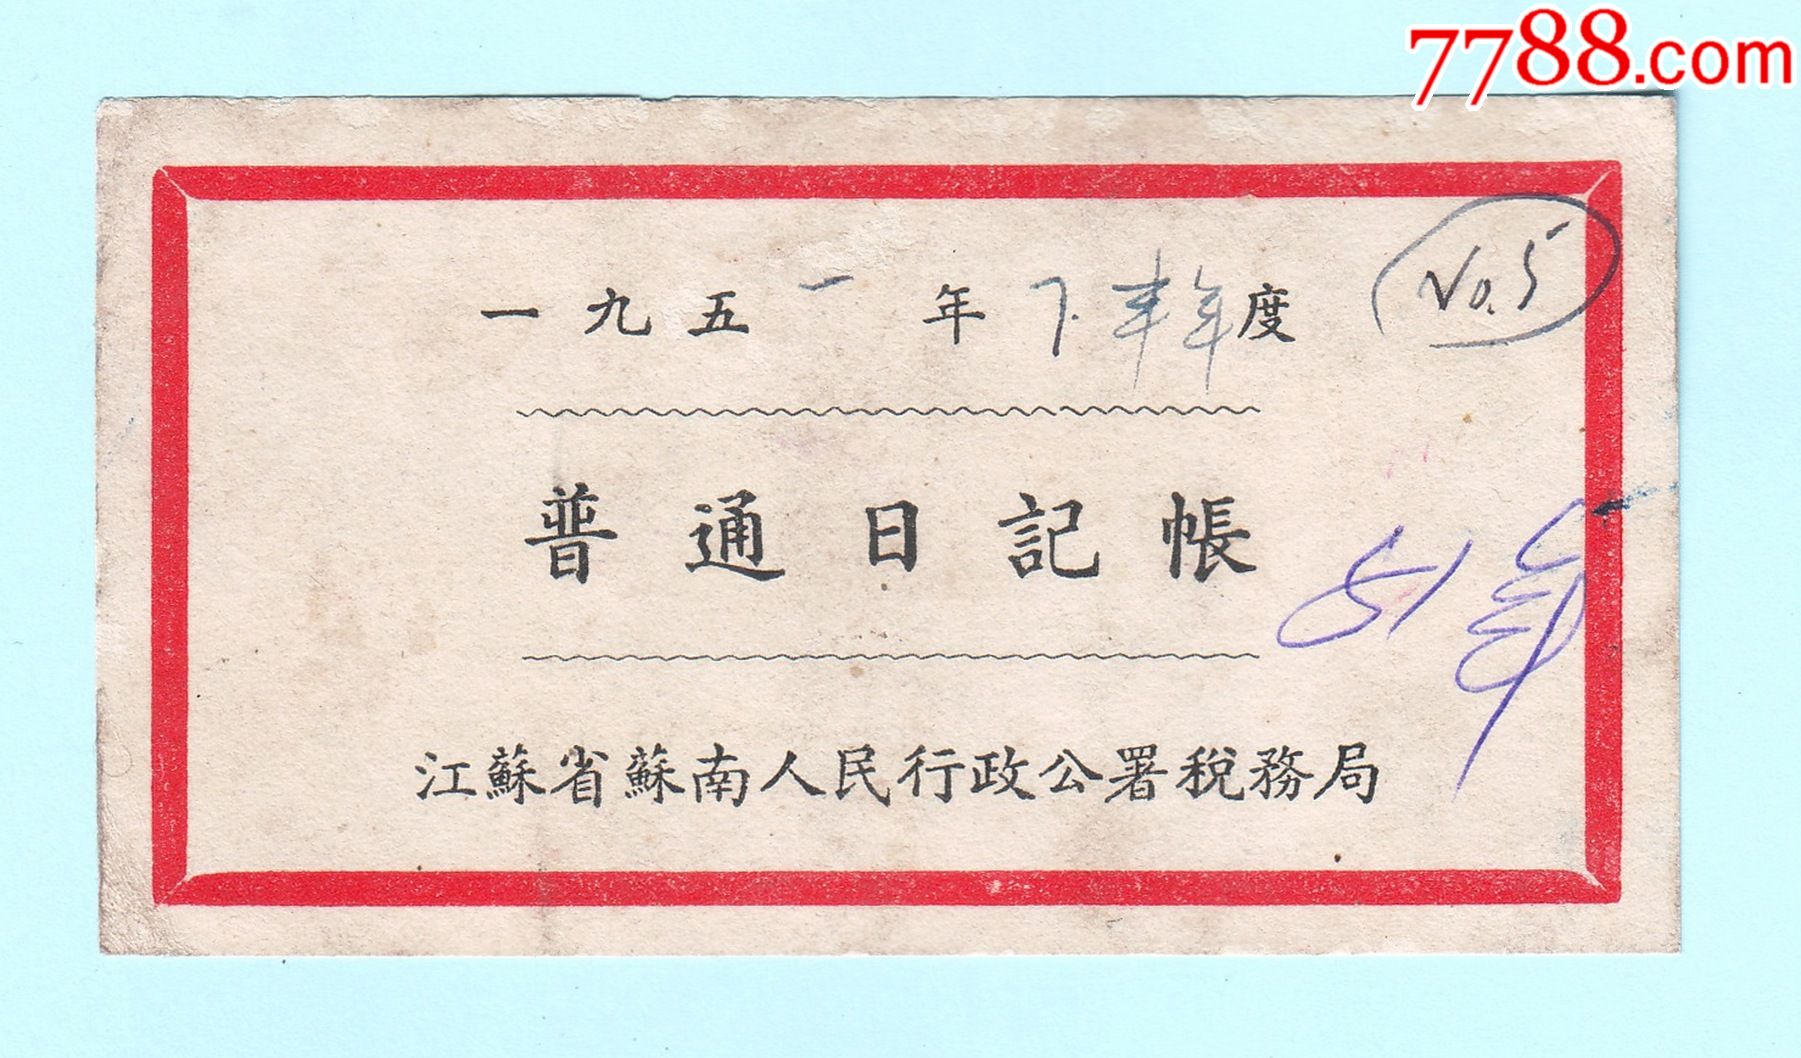 7788.com
一九五一年下半年度
No.5
普通日記帳
51年
江蘇省蘇南人民行政公署稅務局